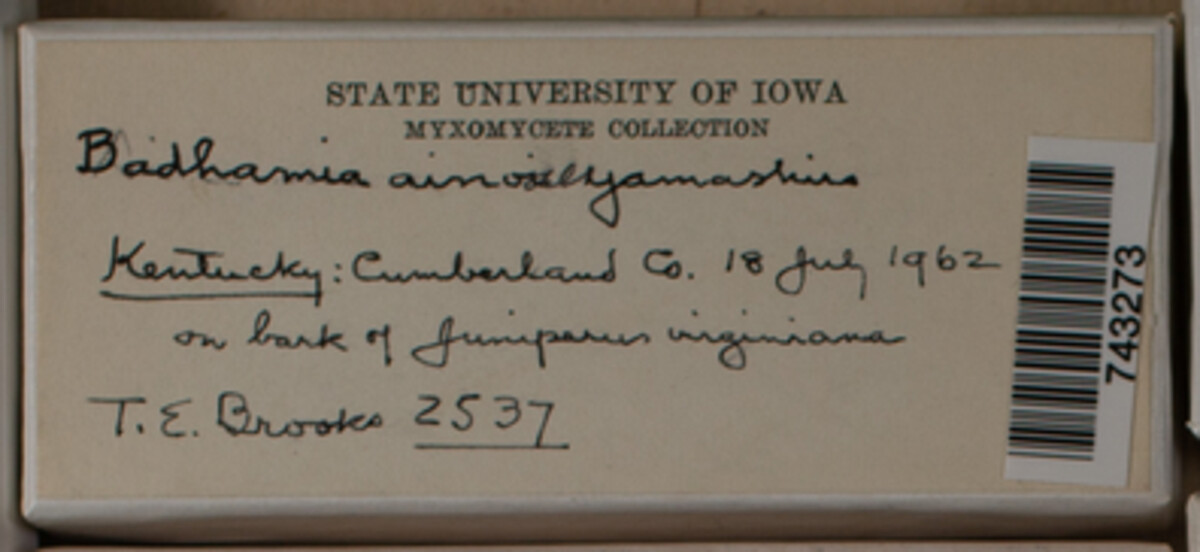 STATE UNIVERSITY OF IOWA
MYXOMYCETE COLLECTION
Badhamia
Kentucky: Cumberland Co. 18 July 1962
on bark of Juniperus virginiana
T. E. Brooks 2537
743273